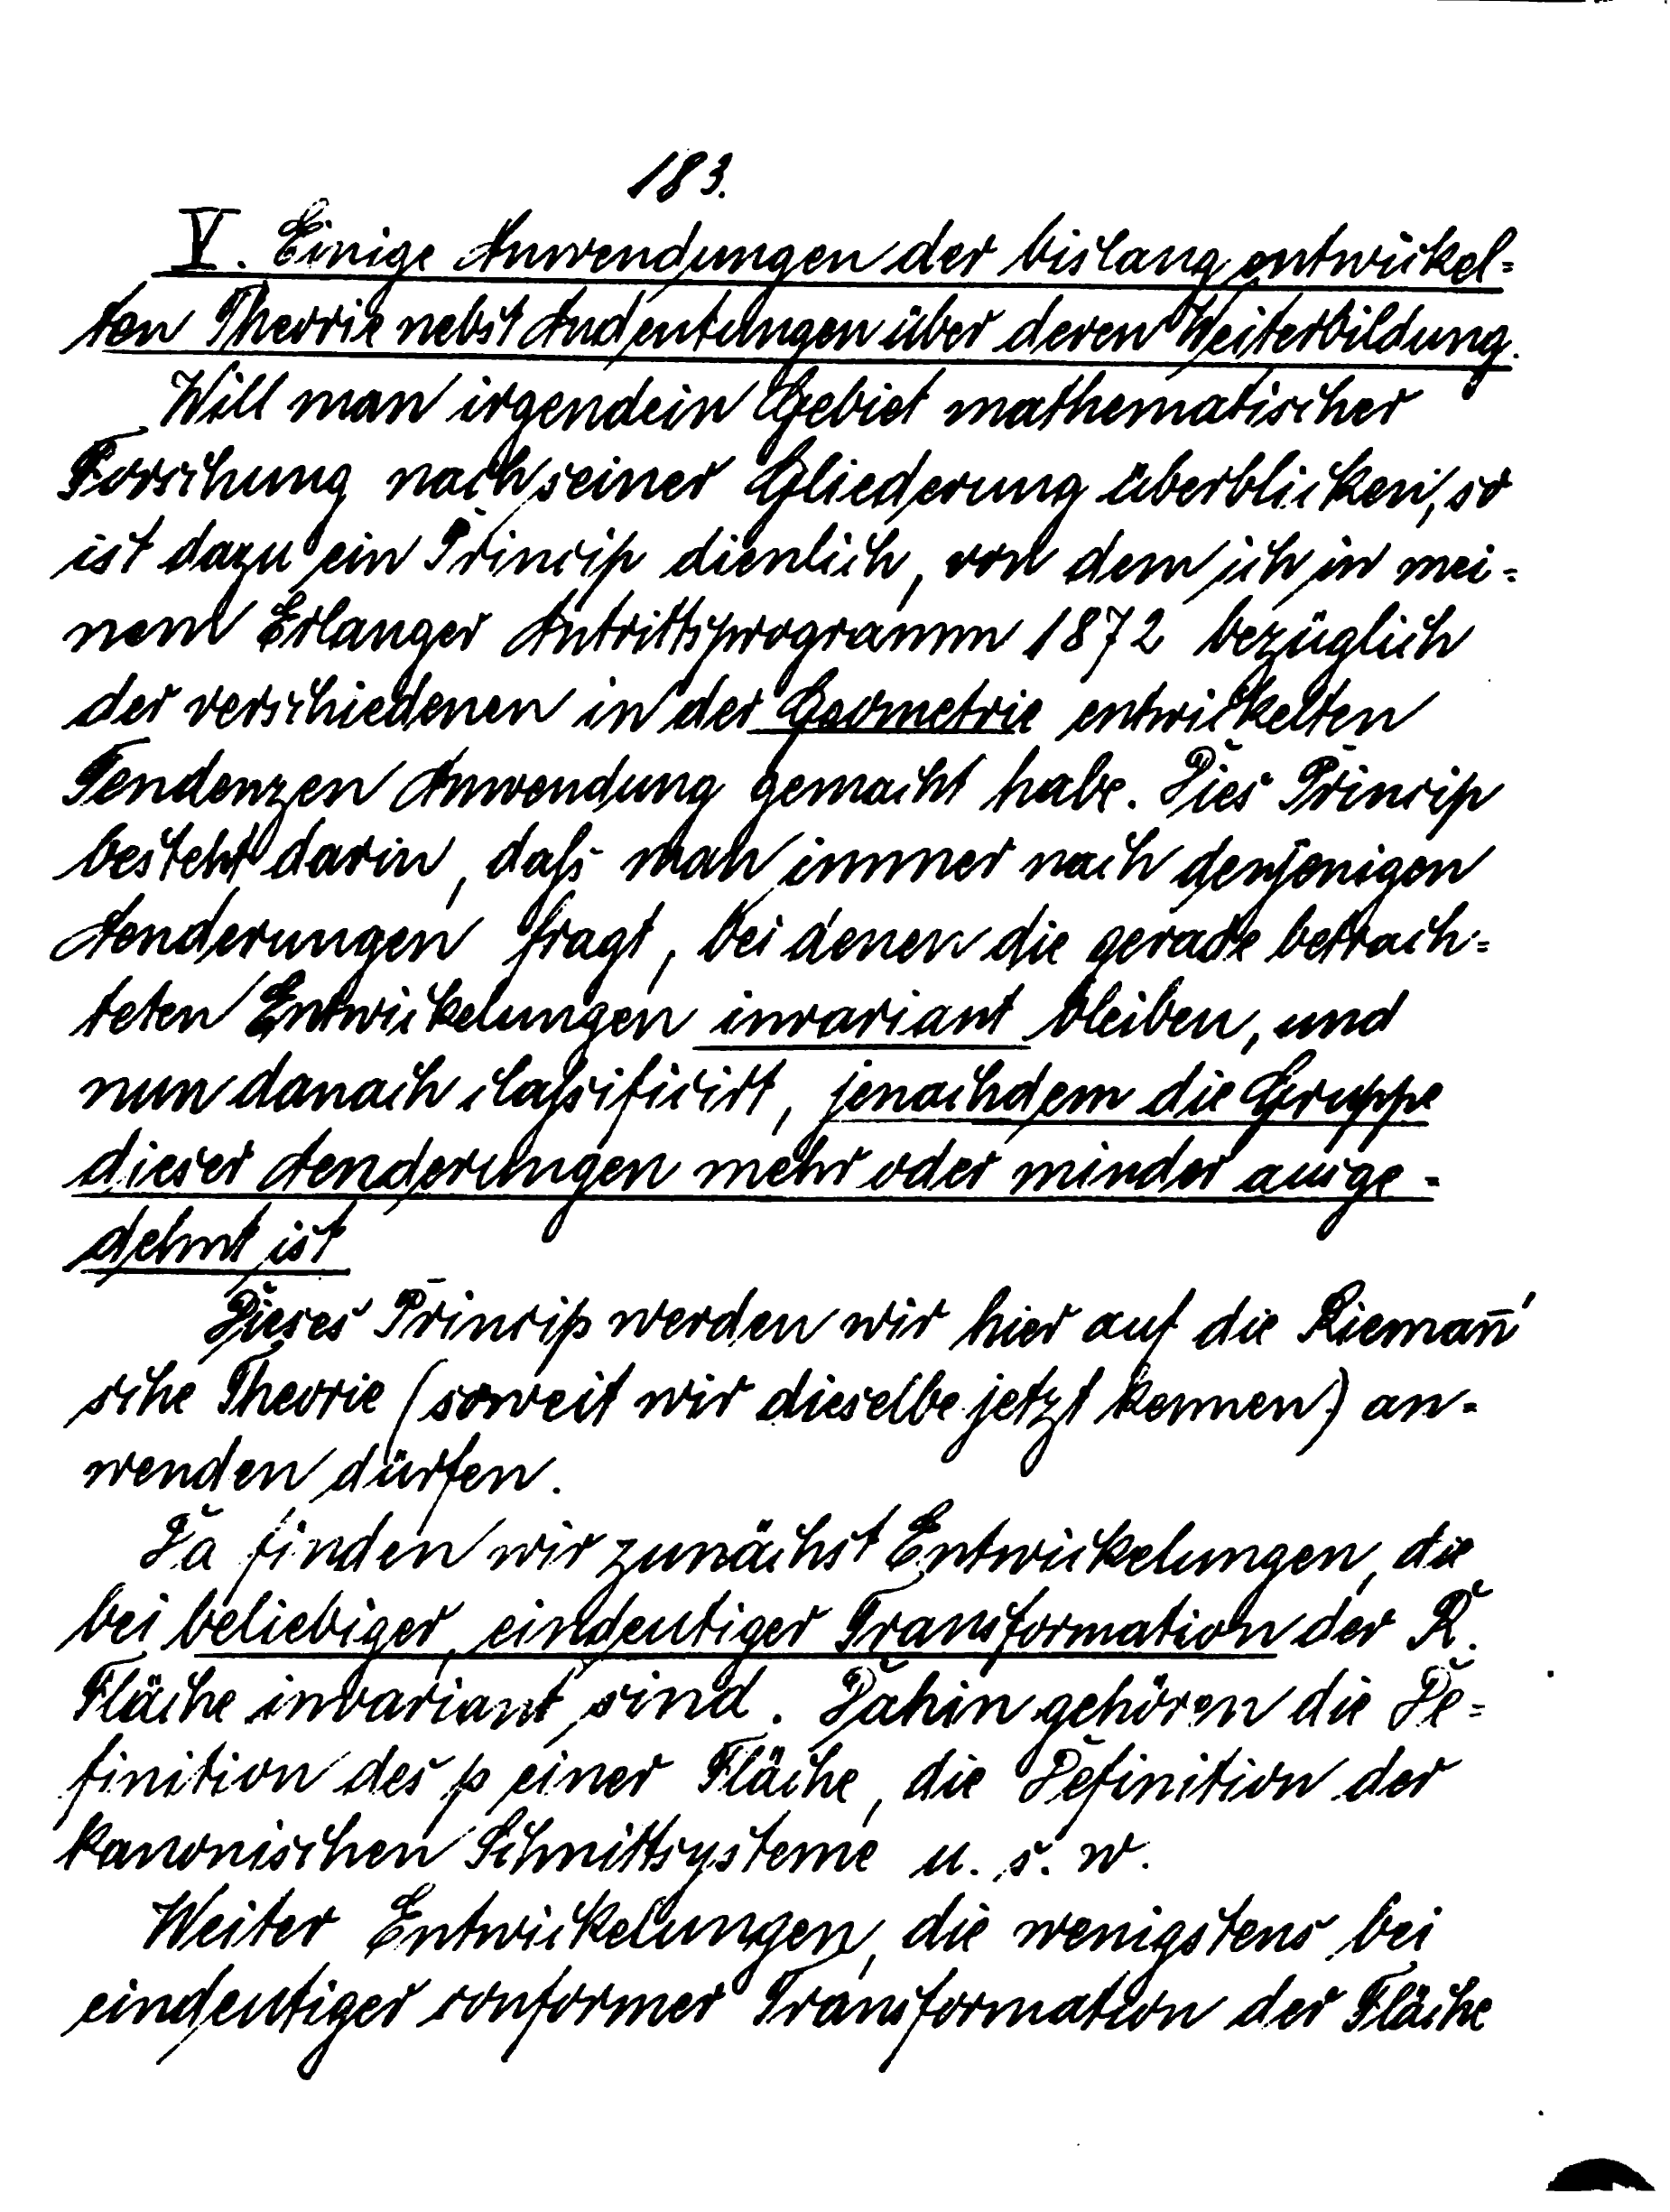 183.
V. Einige Anwendungen der bislang entwickel=
ten Theorie nebst Andeutungen über deren Weiterbildung.
Will man irgendein Gebiet mathematischer
Forschung nach seiner Gliederung überblicken, so
ist dazu ein Princip dienlich, von dem ich in mei=
nem Erlanger Antrittsprogramm 1872 bezüglich
der verschiedenen in der Geometrie entwickelten
Tendenzen Anwendung gemacht habe. Dies Princip
besteht darin, daſs man immer nach denjenigen
Aenderungen fragt, bei denen die gerade betrach=
teten Entwickelungen invariant bleiben, und
nun danach claſsificirt, jenachdem die Gruppe
dieser Aenderungen mehr oder minder ausge-
dehnt ist
Dieses Princip werden wir hier auf die Rieman̄'
sche Theorie (soweit wir dieselbe jetzt kennen) an-
wenden dürfen.
Da finden wir zunächst Entwickelungen, die
bei beliebiger, eindeutiger Transformation der R.
Fläche invariant sind. Dahin gehören die De=
finition des p einer Fläche, die Definition der
kanonischen Schnittsysteme u. s. w.
Weiter Entwickelungen, die wenigstens bei
eindeutiger conformer Transformation der Fläche